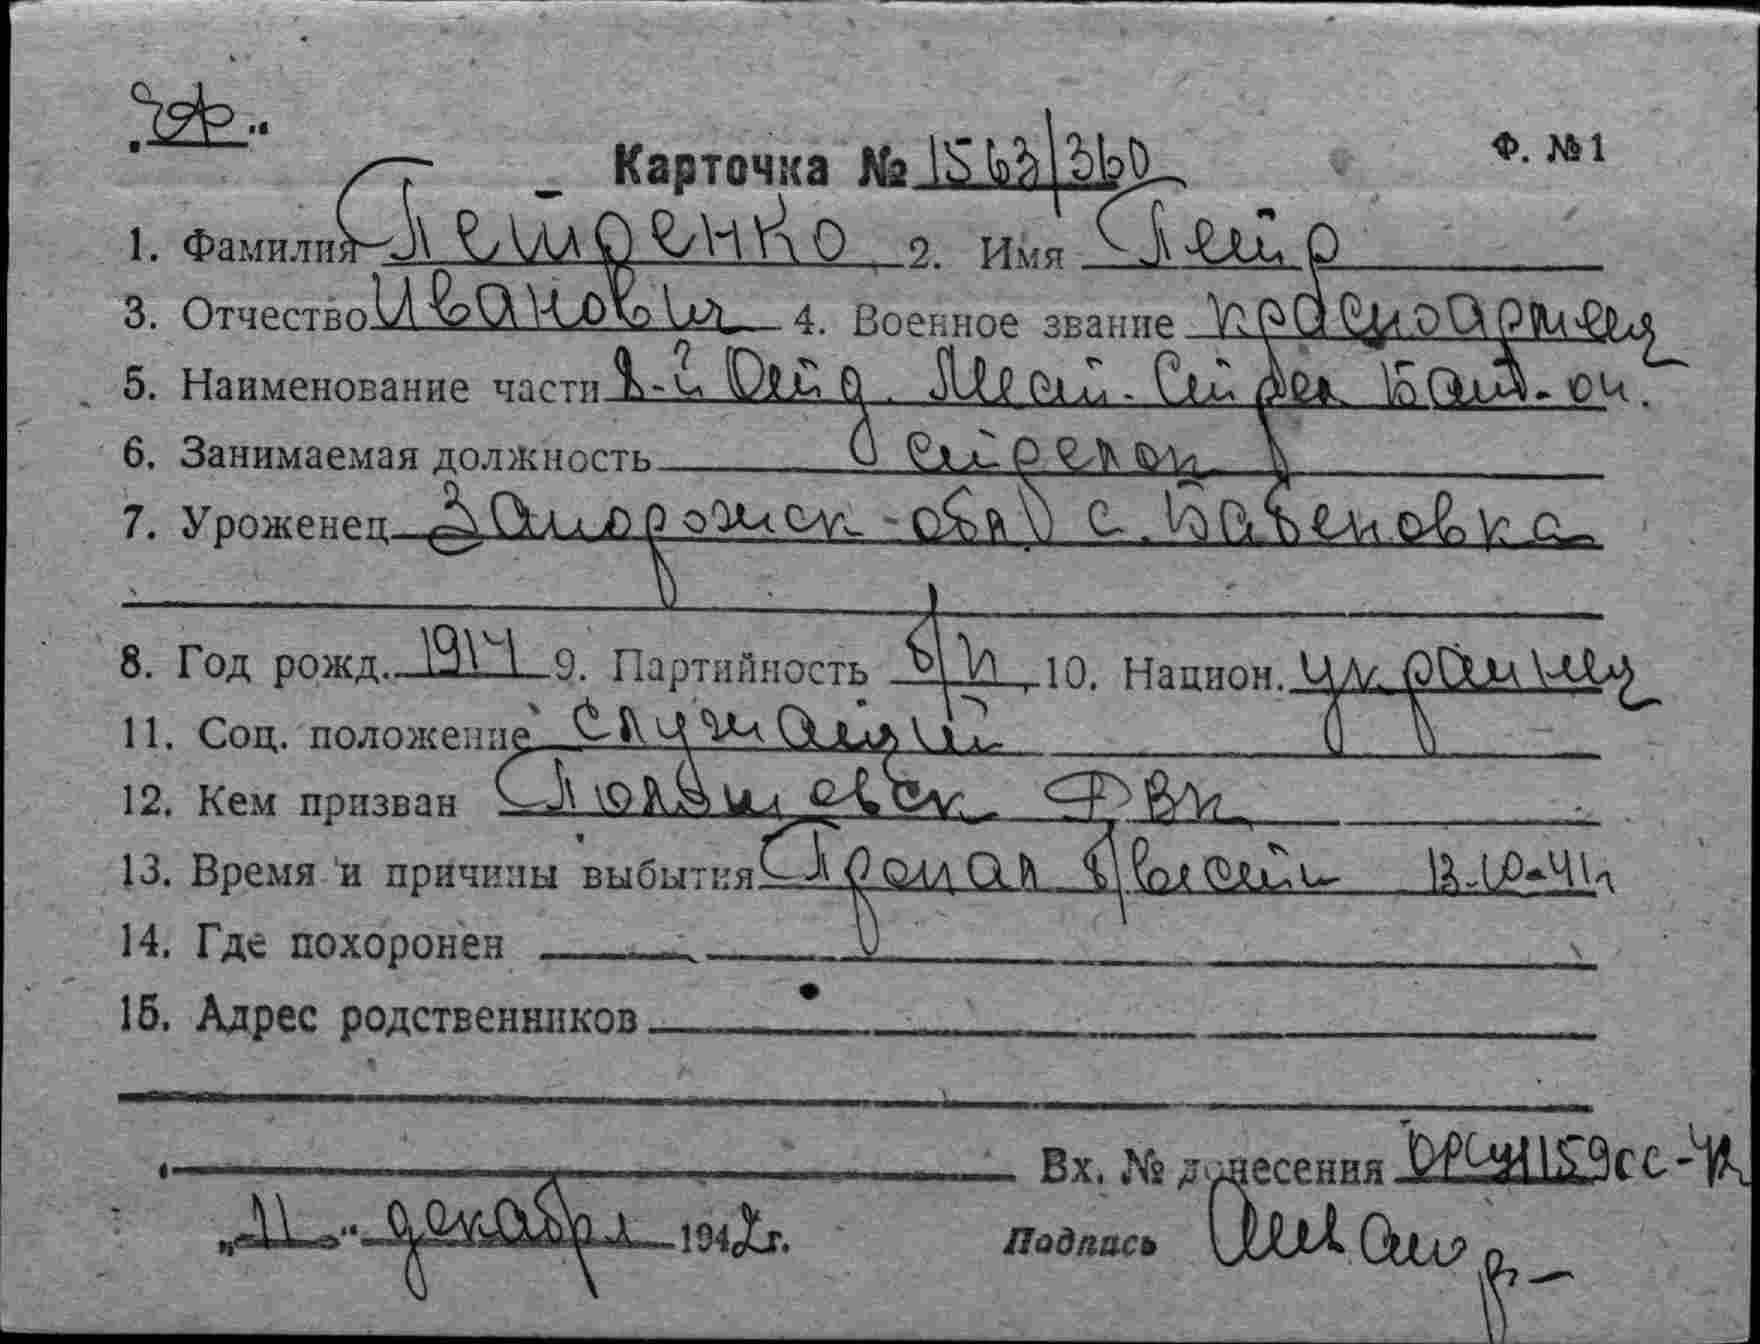 Карточка № 1563/360
Ф. № 1
1. Фамилия Петренко 2. Имя Петр
3. Отчество Иванович 4. Военное звание красноармеец
5. Наименование части 8-й Отд. Мест. Стрел. Бат-он.
6. Занимаемая должность стрелок
7. Уроженец Запорожск. обл. с. Бабеновка
8. Год рожд. 1914 9. Партийность б/п, 10. Национ. украинец
11. Соц. положение служащий
12. Кем призван РВК
13. Время и причины выбытия Пропал б/вести 13-10-41г
14. Где похоронен
15. Адрес родственников
Вх. № донесения 1159сс-42
„11" декабря 1942г. Подпись